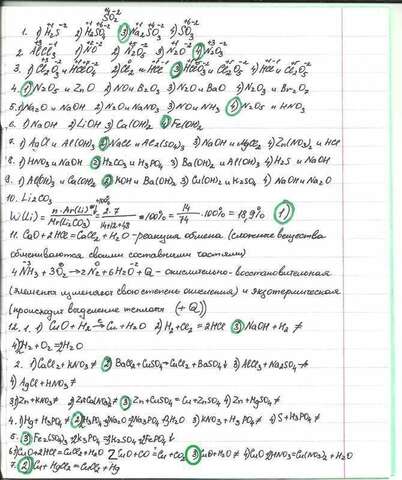 +4 -2
SO2
1. 1) H2S 2) H2SO3 3) Na2SO3 4) SO3
2. AlCl3 1) NO 2) N2O5 3) N2O 4) N2O3
4. 1) N2O5 и ZnO 2) NO и B2O3 3) N2O и BaO 4) N2O3 и
5. 1) Na2O и NaOH 2) N2O и NaNO3 3) NO и NH3 4) N2O5 и HNO3
6. 1) NaOH 2) LiOH 3) Ca(OH)2 4) Fe(OH)2
7. 1) AgCl и Al(OH)3 2) NaCl и Al2(SO4)3 3) NaOH и MgCl2 4) Zn(NO3)2 и HCl
8. 1) HNO3 и NaOH 2) H2CO3 и H3PO4 3) Ba(OH)2 и Al(OH)3 4) H2S и NaOH
9. 1) Al(OH)3 и Ca(OH)2 2) KOH и Ba(OH)2 3) Cu(OH)2 и K2SO4 4) NaOH и Na2O
10. Li2CO3
W(Li) = n·Ar(Li)·100% / Mr(Li2CO3) = 2·7 / 14+12+48 ·100% = 14/74 ·100% = 18,9% 1)
11. CaO + 2HCl = CaCl2 + H2O - реакция обмена (сложные вещества
обмениваются своими составными частями)
4NH3 + 3O2 → 2N2 + 6H2O + Q - окислительно-восстановительная
(элементы изменяют свою степень окисления) и экзотермическая
(происходит выделение теплоты (+Q))
12. 1. 1) CuO + H2 → Cu + H2O 2) H2 + Cl2 = 2HCl 3) NaOH + H2 ≠
4) 2H2 + O2 = 2H2O
2. 1) CuCl2 + KNO3 ≠ 2) BaCl2 + CuSO4 → CuCl2 + BaSO4↓ 3) AlCl3 + Na2SO4 ≠
4) AgCl + HNO3 ≠
3. 1) Zn + KNO3 ≠ 2) Zn 3) Zn + CuSO4 = Cu + ZnSO4 4) Zn + MgSO4 ≠
4. 1) Hg + H3PO4 ≠ 2) 3) KNO3 + H3PO4 ≠ 4) S + H3PO4 ≠
5. 3)
6. 1) CuO + 2HCl = CuCl2 + H2O 2) CuO + CO = Cu + CO2 3) CuO + H2O ≠ 4) CuO + 2HNO3 = Cu(NO3)2 + H2O
7. 2) Cu + HgCl2 = CuCl2 + Hg